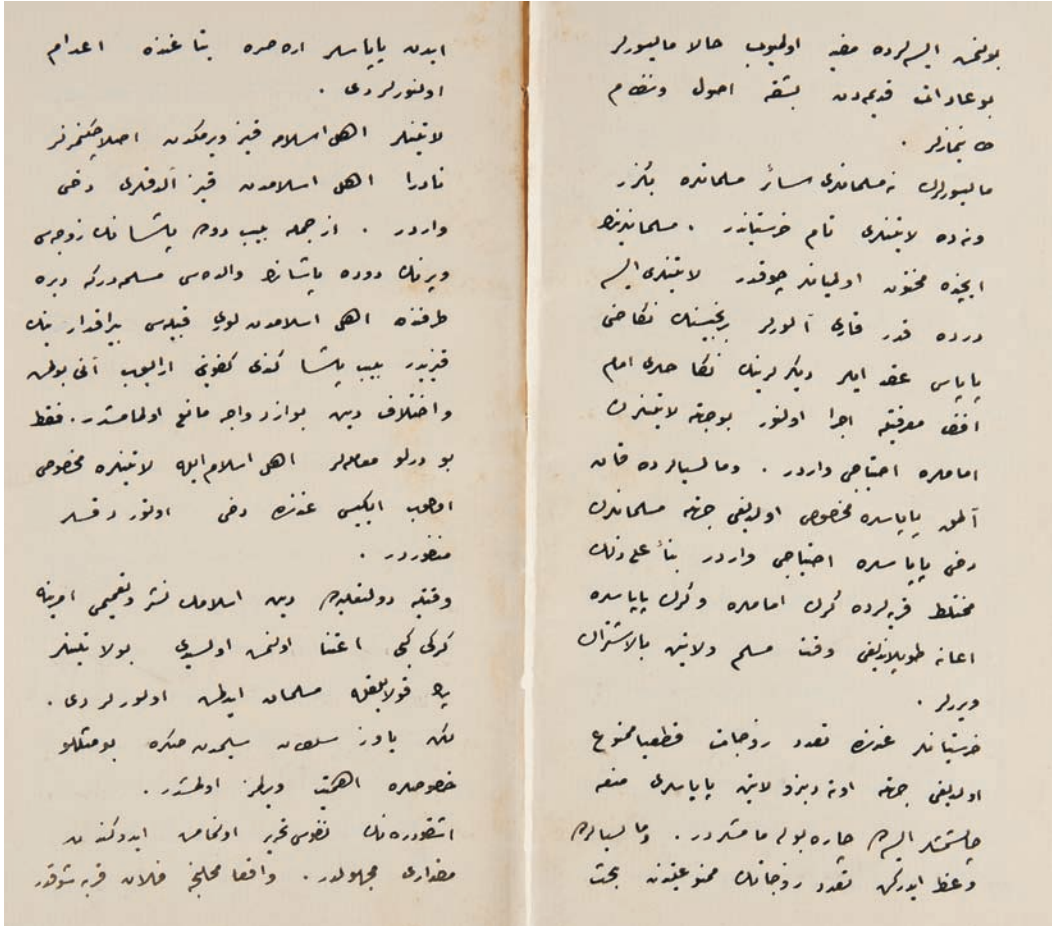 بولنمش ايسه‌لرده مفيد اولميوب حالا ماليسورلر
بو عادات قديمه‌دن بشقه اصول ونظام
طانيمازلر .
ماليسورلرك نه مسلمانلرى سائر مسلمانلره بكزر
ونه ده لاتينلرى تام خرستياندر . مسلمانلرينك
ايچنده مختون اولميانلر چوقدر لاتينلرى ايسه
درده قدر قارى آلورلر برنجيسنك نكاحنى
پاپاس عقد ايدر ديكرلرينك نكاحلرى امام
افندى معرفتيله اجرا اولنور بوجهتله لاتينلرك
امامله احتياجى واردر . وماليسيالرده قان
آلمق پاپاسلره مخصوص اولديغى جهتله مسلمانلرك
دخى پاپاسلره احتياجى واردر بناءً على ذلك
مختلط قريه‌لرده كرك امامله وكرك پاپاسلره
اعانه طوپلانديغى وقت مسلم ولاتين بالاشتراك
ويررلر .
خرستيانلر عندنده تعدد زوجات قطعيا ممنوع
اولديغى جهتله اوته دنبرو لاتين پاپاسلرى منعه
چالشمشلر ايسه‌ده چاره بوله مامشلردر . وماليسيالرده
وعظ ايدركن تعدد زوجاتك ممنوعيتندن بحث
ايدن پاپاسلر اره صره يتاغنده اعدام
اولنورلردى .
لاتينلر اهل اسلامه قيز ويرمكدن اصلا چكنمزلر
نادرا اهل اسلامدن قيز آلدقلرى دخى
واردر . از جمله بيب دوده پاشانك زوجه‌سى
ويرنك دوده پاشانك والده‌سى مسلمه‌در كه دبره
طرفنده اهل اسلامدن لورى قبيله‌سى بيراقدارينك
قيزيدر بيب پاشا كندى كفوينى ارايوب آنى بولمش
واختلاف دين بو ازدواجه مانع اولمامشدر . فقط
بو درلو معامله‌لر اهل اسلام ايله لاتينلره مخصوص
اولوب ايكيسى عندنده دخى اورتودوقسلر
منفوردر .
وقتيله دولتعليه‌جه دين اسلامك نشر وتعميمى امرينه
كركى كبى اعتنا اولنمش اولسيدى بو لاتينلر
پك قولايلقله مسلمان ايدلمش اولورلردى .
لكن ياوز سلطان سليمدن صكره بومثللو
خصوصله اهميت ويرلمز اولمشدر .
اشقودره‌نك نفوسى تحرير اولنمامش ايدوكندن
مقدارى مجهولدر . واقعا محلنجه فلان قريه شوقدر